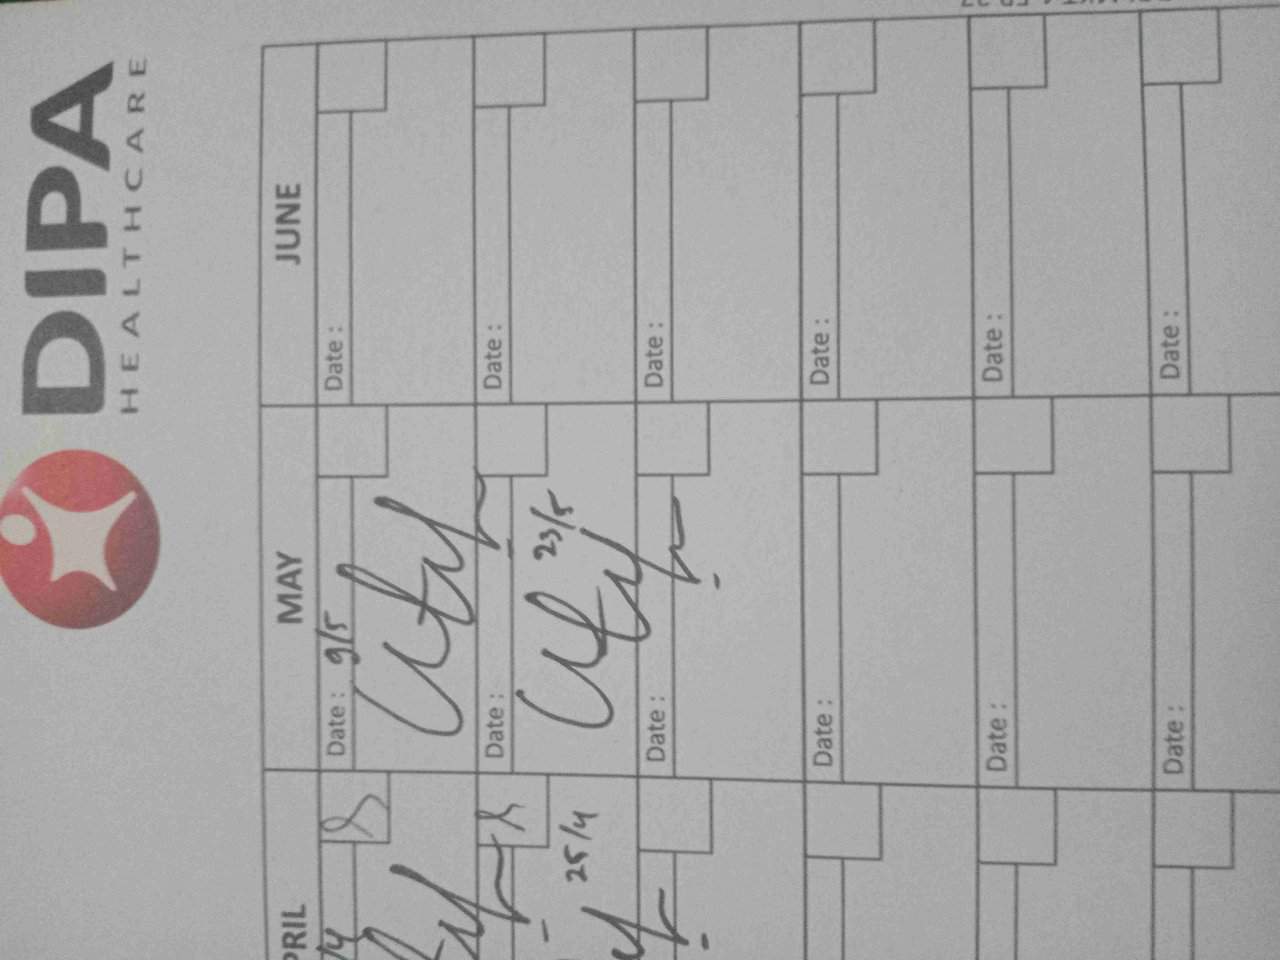 DIPA
HEALTHCARE
PRIL MAY JUNE
Date : 9/5 Date :
Date : Date :
25/4 23/5
Date : Date :
Date : Date :
Date : Date :
Date : Date :